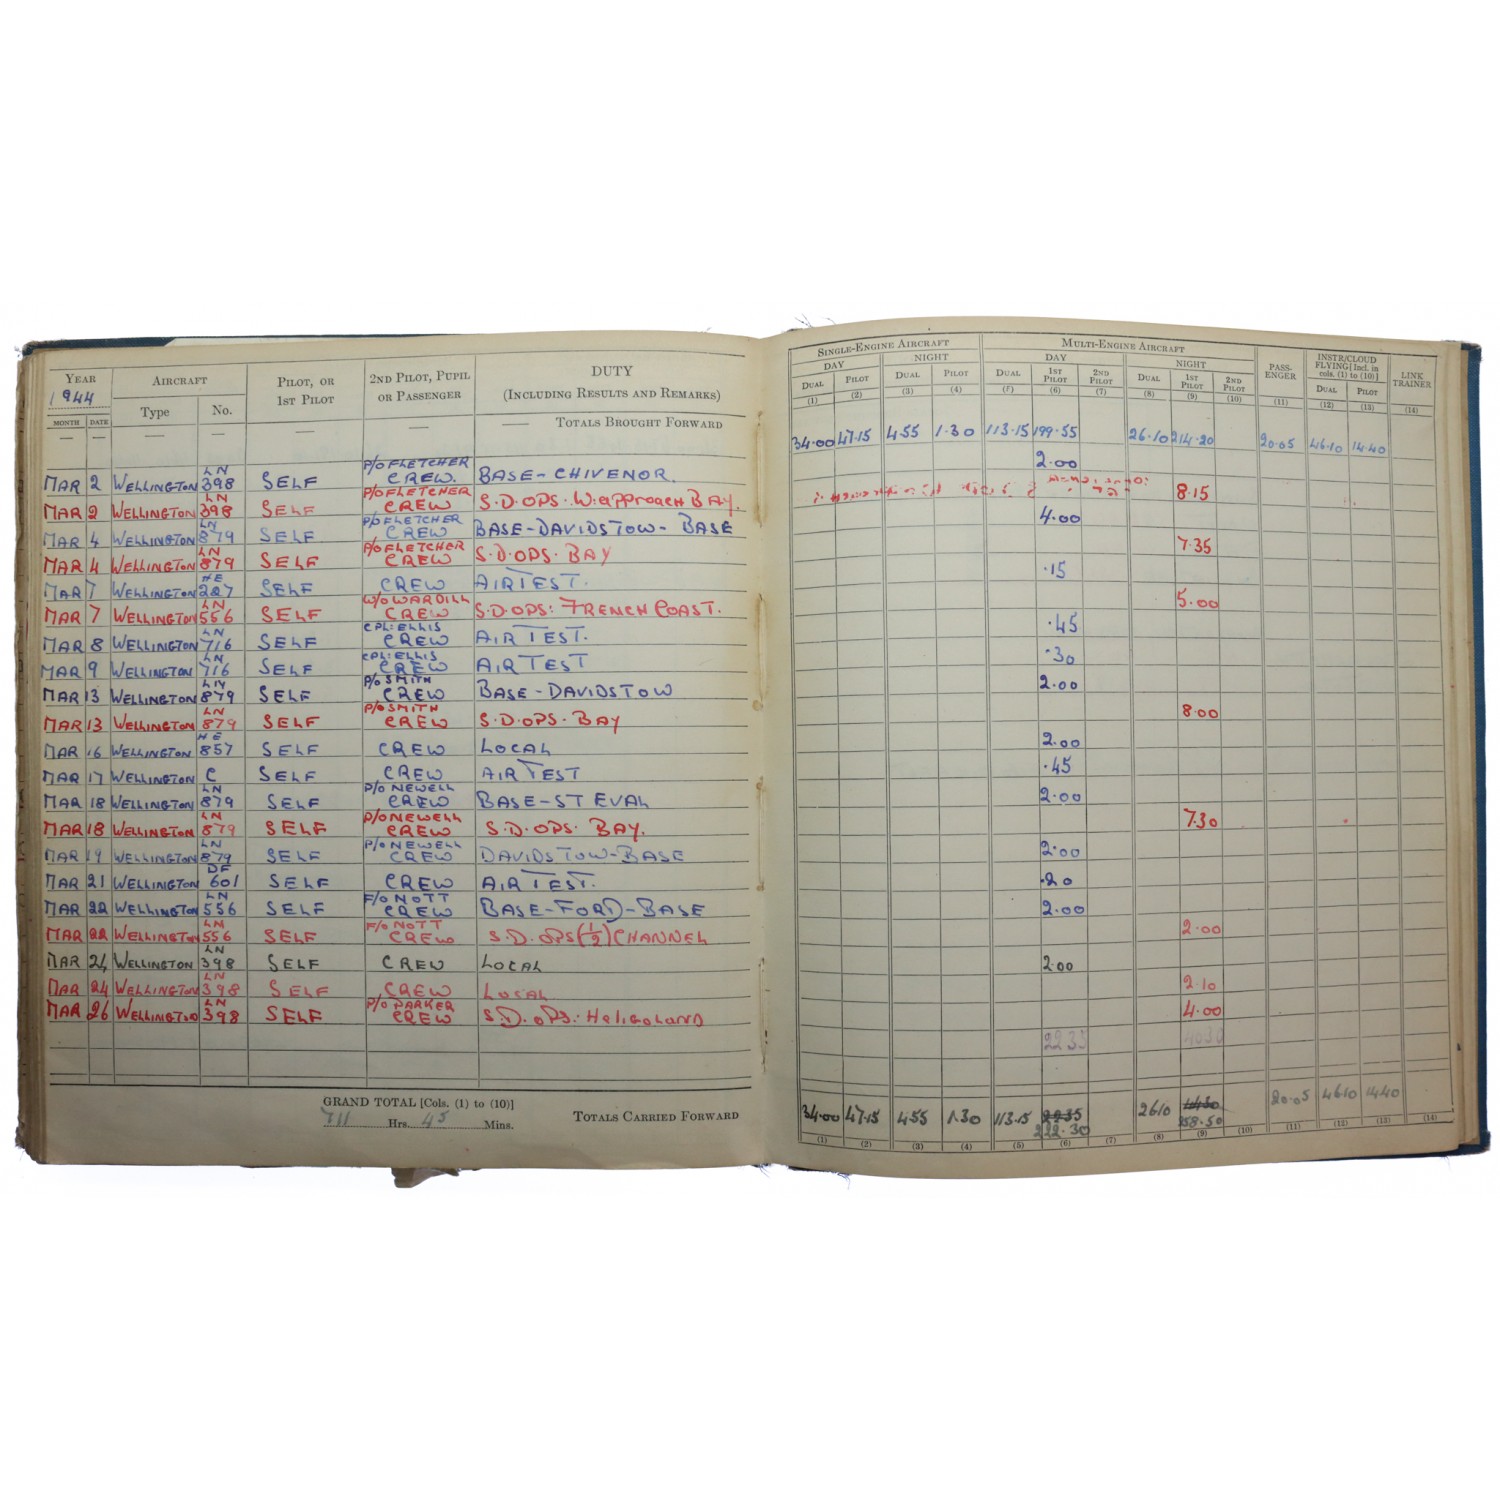 YEAR 1944 AIRCRAFT PILOT, OR 1ST PILOT 2ND PILOT, PUPIL OR PASSENGER DUTY (INCLUDING RESULTS AND REMARKS)
MONTH DATE Type No.
— — — — — — — TOTALS BROUGHT FORWARD
MAR 2 WELLINGTON LN 398 SELF P/O FLETCHER CREW. BASE-CHIVENOR.
MAR 2 WELLINGTON LN 398 SELF P/O FLETCHER CREW S.D.OPS. W.approach BAY.
MAR 4 WELLINGTON LN 879 SELF P/O FLETCHER CREW BASE-DAVIDSTOW-BASE
MAR 4 WELLINGTON LN 879 SELF P/O FLETCHER CREW S.D.OPS. BAY
MAR 7 WELLINGTON HE 227 SELF CREW AIR TEST.
MAR 7 WELLINGTON LN 556 SELF W/O WARDILL CREW S.D.OPS: FRENCH COAST.
MAR 8 WELLINGTON LN 716 SELF CPL: ELLIS CREW AIR TEST.
MAR 9 WELLINGTON LN 716 SELF CPL: ELLIS CREW AIR TEST
MAR 13 WELLINGTON LN 879 SELF P/O SMITH CREW BASE-DAVIDSTOW
MAR 13 WELLINGTON LN 879 SELF P/O SMITH CREW S.D.OPS. BAY
MAR 16 WELLINGTON HE 857 SELF CREW LOCAL
MAR 17 WELLINGTON C SELF CREW AIR TEST
MAR 18 WELLINGTON LN 879 SELF P/O NEWELL CREW BASE-ST EVAL
MAR 18 WELLINGTON LN 879 SELF P/O NEWELL CREW S.D.OPS. BAY.
MAR 19 WELLINGTON LN 879 SELF P/O NEWELL CREW DAVIDSTOW-BASE
MAR 21 WELLINGTON DF 601 SELF CREW AIR TEST.
MAR 22 WELLINGTON LN 556 SELF F/O NOTT CREW BASE-FORD-BASE
MAR 22 WELLINGTON LN 556 SELF F/O NOTT CREW S.D. OPS (1/2) CHANNEL
MAR 24 WELLINGTON LN 398 SELF CREW LOCAL
MAR 24 WELLINGTON LN 398 SELF CREW LOCAL
MAR 26 WELLINGTON LN 398 SELF P/O PARKER CREW S.D. OPS: HELIGOLAND
GRAND TOTAL [Cols. (1) to (10)]
711 Hrs. 45 Mins.
TOTALS CARRIED FORWARD
SINGLE-ENGINE AIRCRAFT MULTI-ENGINE AIRCRAFT PASS-ENGER INSTR/CLOUD FLYING [Incl. in cols. (1) to (10)] LINK TRAINER
DAY NIGHT DAY NIGHT
DUAL PILOT DUAL PILOT DUAL 1ST PILOT 2ND PILOT DUAL 1ST PILOT 2ND PILOT DUAL PILOT
(1) (2) (3) (4) (5) (6) (7) (8) (9) (10) (11) (12) (13) (14)
34.00 47.15 4.55 1.30 113.15 199.55 26.10 214.20 20.05 46.10 14.40
2.00
8.15
4.00
7.35
.15
5.00
.45
.30
2.00
8.00
2.00
.45
2.00
7.30
2.00
.20
2.00
2.00
2.00
2.10
4.00
34.00 47.15 4.55 1.30 113.15 2235 26.10 20.05 46.10 14.40
222.30 258.50
(1) (2) (3) (4) (5) (6) (7) (8) (9) (10) (11) (12) (13) (14)